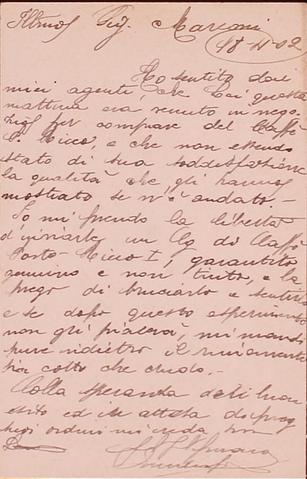 Illmo Sig. Marconi
18-11-02
Ho sentito dai
miei agenti, che Lei questa
mattina era venuto in nego-
zio per comprare del Caffè
P. Ricco, e che non essendo
stato di sua soddisfazione
la qualità che gli hanno
mostrato se n'è andato.-
Io mi prendo la libertà
d'inviarle un Kg di Caffè
Porto-Ricco I, garantito
genuino e non tinto, e la
prego di bruciarlo e sentirlo
e se dopo questo esperimento
non gli piacerà, mi mandi
pure indietro il rimanente
sia cotto che crudo.-
Colla speranza del buon
esito ed in attesa di
ordini mi creda